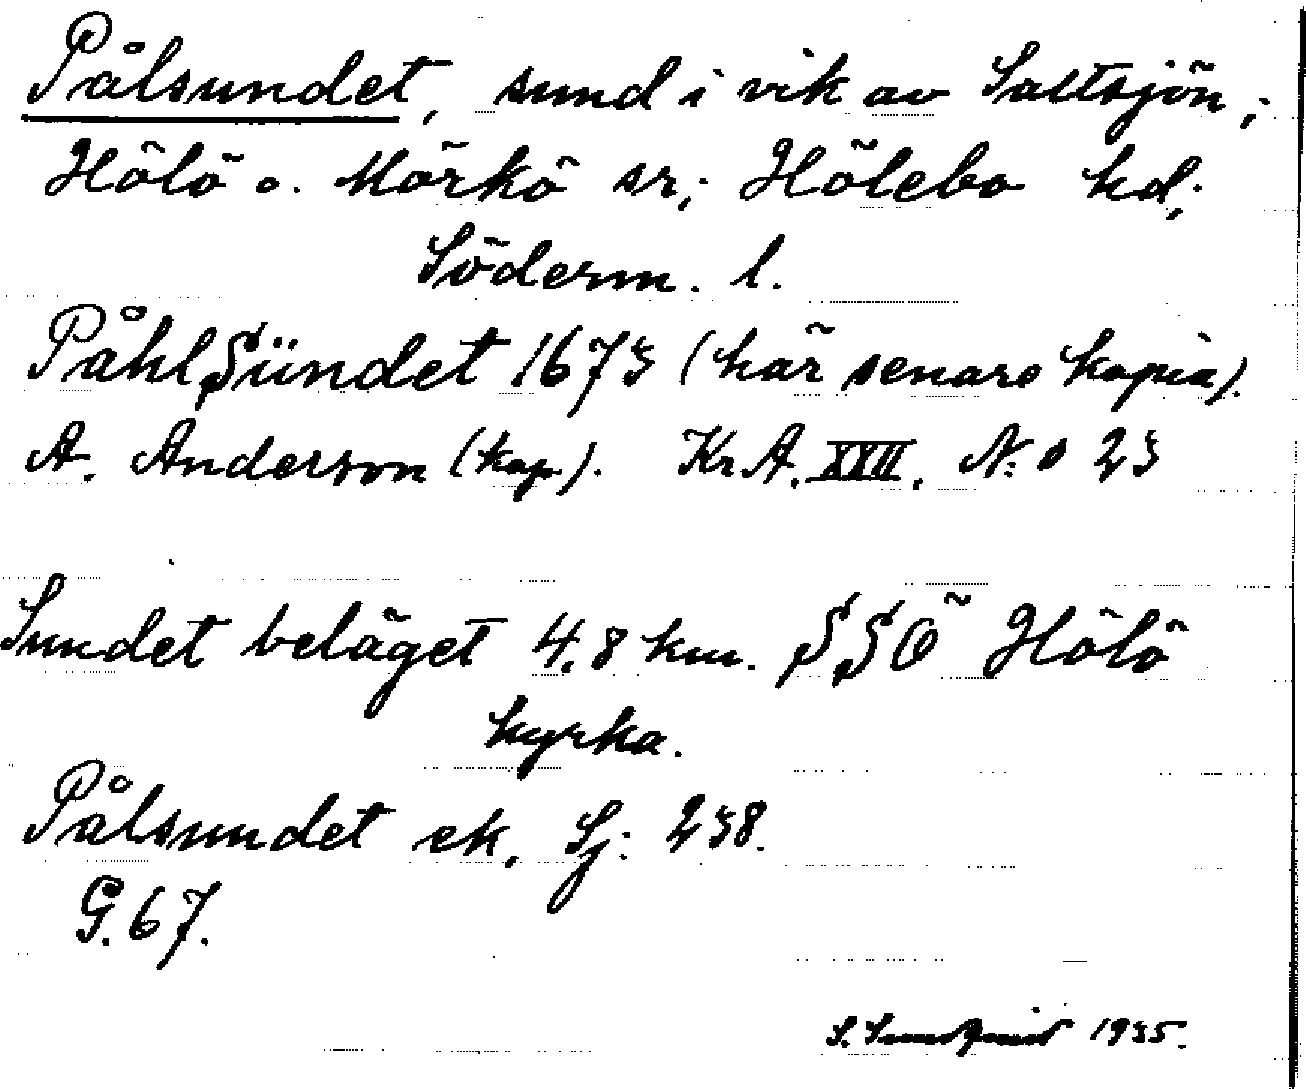 Pålsundet, sund i vik av Saltsjön;
Hölö o. Mörkö sr; Hölebo hd;
Söderm. l.
PåhlSündet 1673 (här senare kopia).
A. Anderson (kop.). Kr.A. XXII. N:o 23
Sundet beläget 4,8 km. SSÖ Hölö
kyrka.
Pålsundet ek. Sj: 238.
G. 67.
S. Sundqvist 1935.